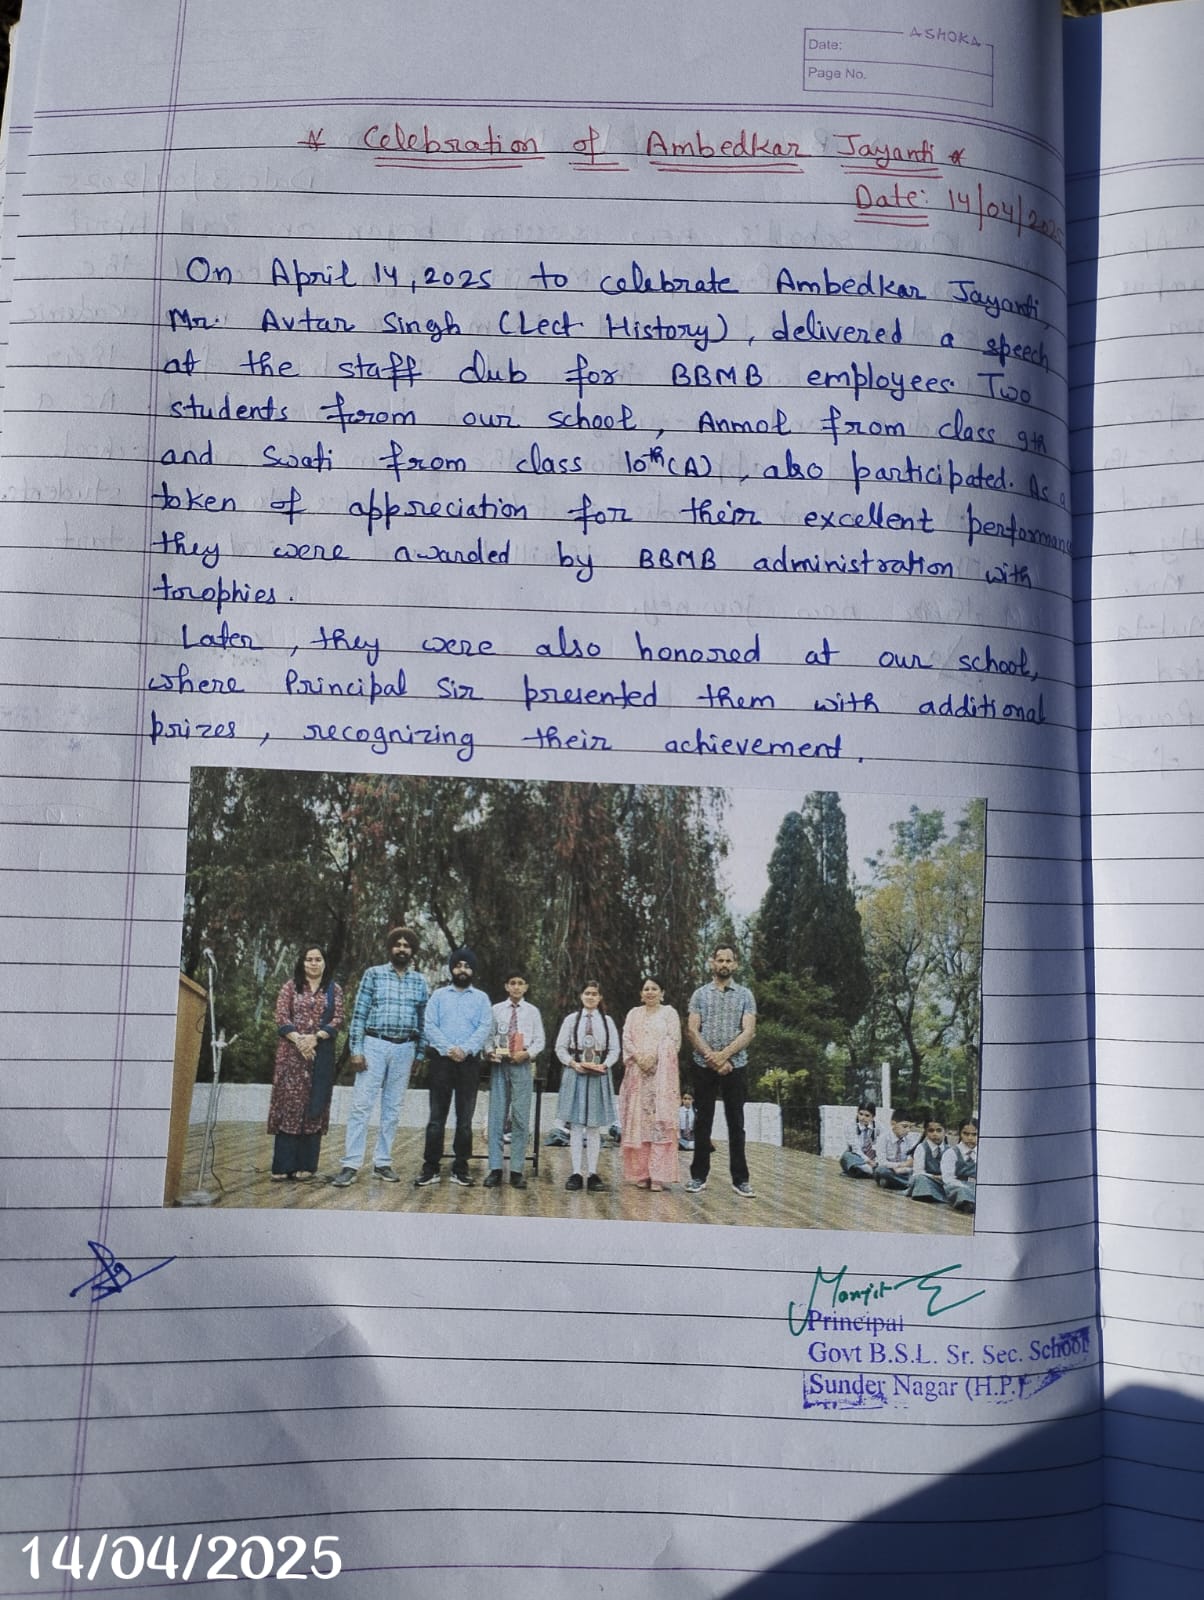 ASHOKA
Date:
Page No.
* Celebration of Ambedkar Jayanti *
Date: 14/04/2025
On April 14, 2025 to celebrate Ambedkar Jayanti,
Mr. Avtar Singh (Lect History), delivered a speech
at the staff club for BBMB employees. Two
students from our school, Anmol from class 9th
and Swati from class 10th(A), also participated. As a
token of appreciation for their excellent performance
they were awarded by BBMB administration with
trophies.
Later, they were also honored at our school,
where Principal Sir presented them with additional
prizes, recognizing their achievement.
Manjit
Principal
Govt B.S.L. Sr. Sec. School
Sunder Nagar (H.P.)
14/04/2025